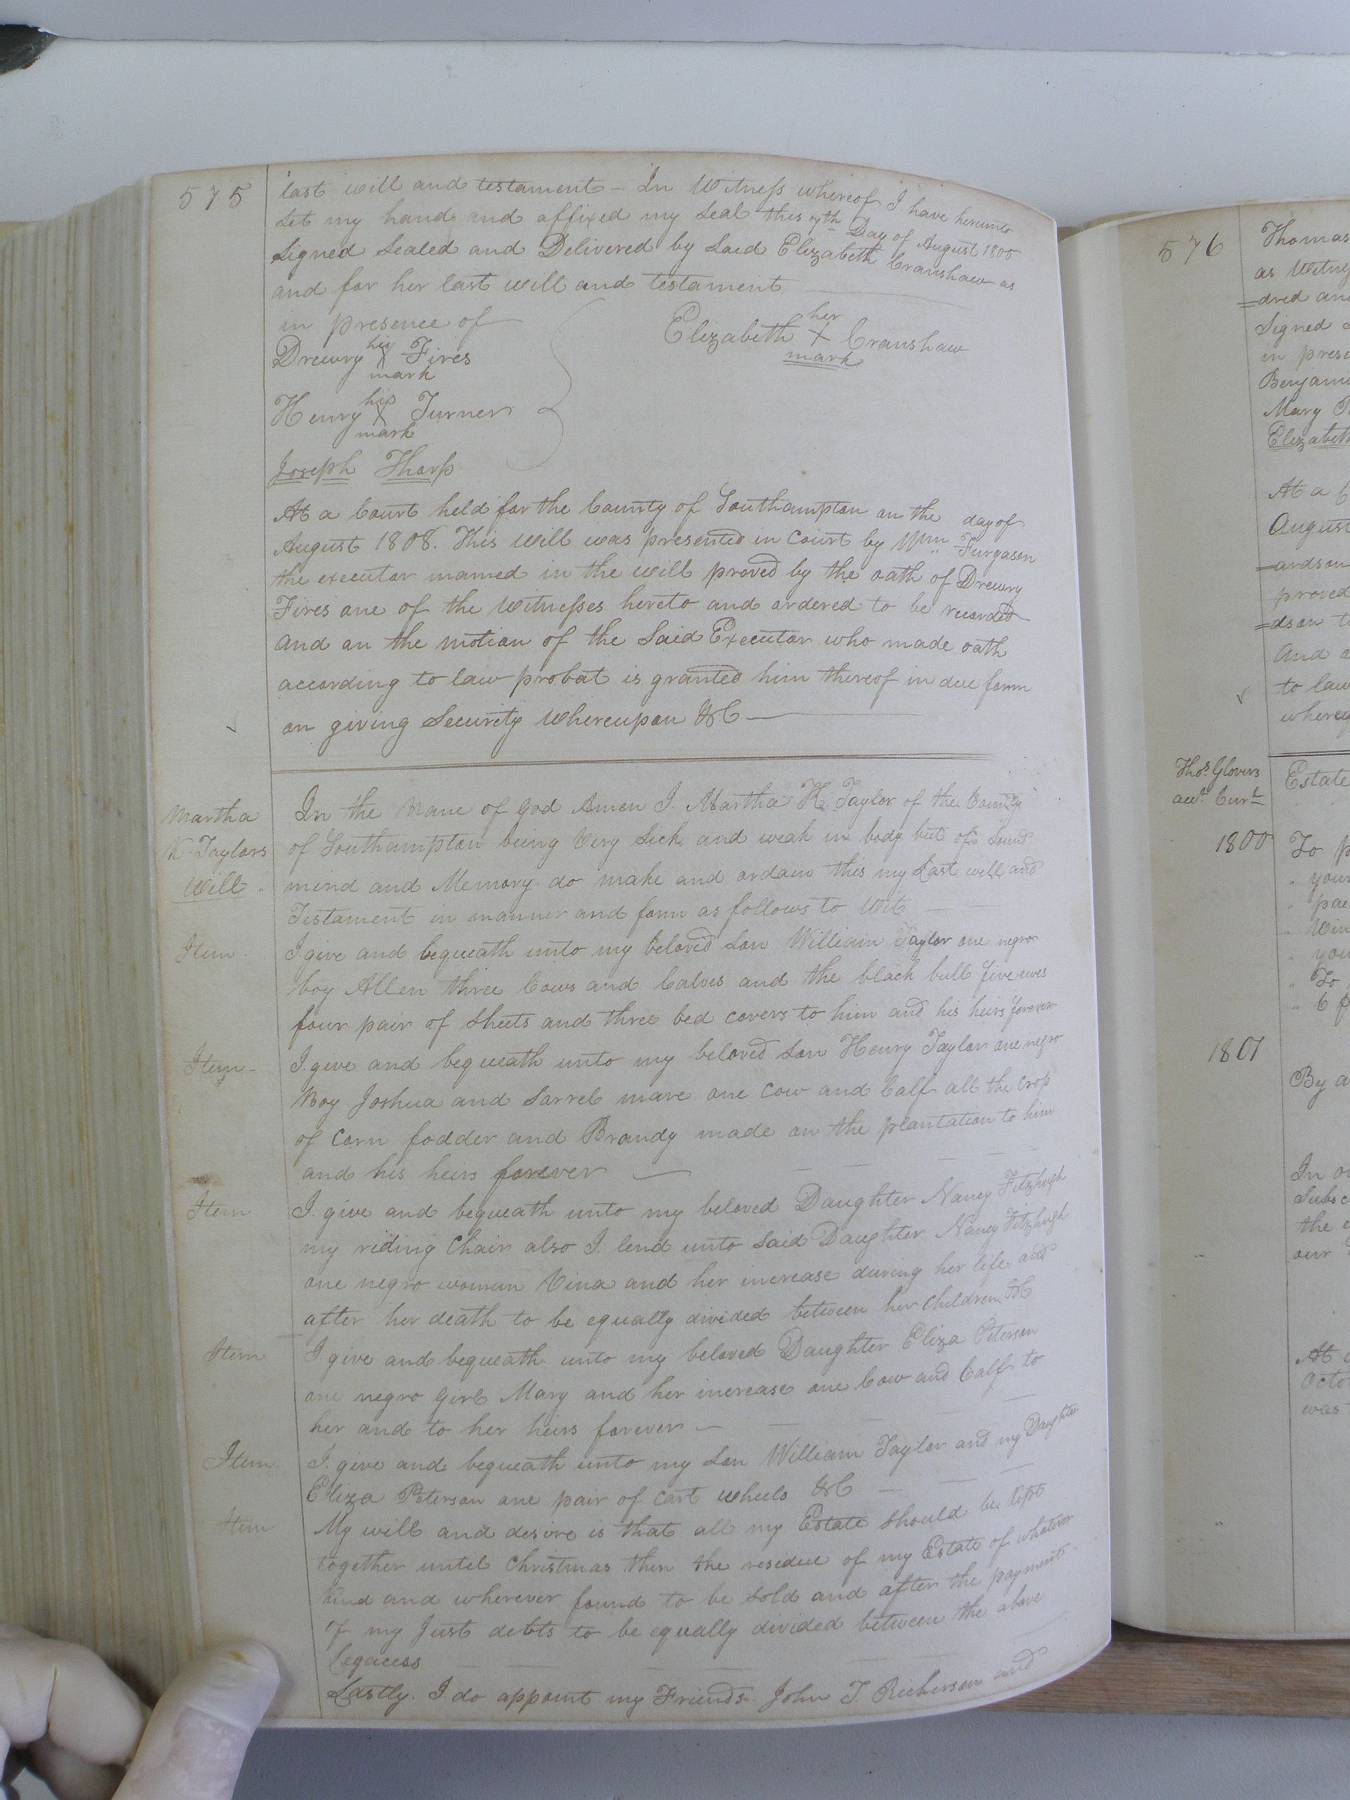 575
last will and testament - In Witness whereof I have hereunto
Set my hand and affixed my Seal this 7th Day of August 1805
Signed Sealed and Delivered by Said Elizabeth Cranshaw as
and for her last will and testament
in presence of
Drewry his X mark Fires
Henry his X mark Turner
Joseph Tharp
Elizabeth her X mark Cranshaw
At a Court held for the County of Southampton on the day of
August 1808. This Will was presented in Court by Wm Furgason
the executor named in the will proved by the oath of Drewry
Fires one of the Witnesses hereto and ordered to be recorded
and on the motion of the Said Executor who made oath
according to law probat is granted him thereof in due form
on giving Security Whereupon &C
Martha
K Taylors
Will
In the Name of God Amen I. Martha K. Taylor of the County
of Southampton being Very Sick and weak in body but of Sound
mind and Memory do make and ordain this my Last will and
Testament in manner and form as follows to Wit
Item
I give and bequeath unto my beloved Son William Taylor one negro
boy Allen three Cows and Calves and the black bull five ewes
four pair of Sheets and three bed covers to him and his heirs forever
Item
I give and bequeath unto my beloved Son Henry Taylor one negro
Boy Joshua and Sorrel mare one Cow and Calf all the Crop
of Corn fodder and Brandy made on the plantation to him
and his heirs forever
Item
I give and bequeath unto my beloved Daughter Nancy Fitzhugh
my riding Chair also I lend unto Said Daughter Nancy Fitzhugh
one negro woman Vina and her increase during her life and
after her death to be equally divided between her Children &C
Item
I give and bequeath unto my beloved Daughter Eliza Peterson
one negro Girl Mary and her increase one Cow and Calf to
her and to her heirs forever
Item
I give and bequeath unto my Son William Taylor and my Daughter
Eliza Peterson one pair of Cart wheels &C
Item
My will and desire is that all my Estate Should be kept
together until Christmas then the residue of my Estate of whatever
kind and wherever found to be Sold and after the payment
of my Just debts to be equally divided between the above
Legacees
Lastly. I do appoint my Friends John T. Richerson and
576
Thomas
as Witne
=dred an
Signed
in pres
Benjam
Mary
Elizabeth
At a
August
=ardson
proved
=dson to
And
to law
where
Thos. Glovers
acct. Curt
Estate
1800
To
your
pa
you
To
1801
By a
In o
Subsc
the
our
At
Octo
was